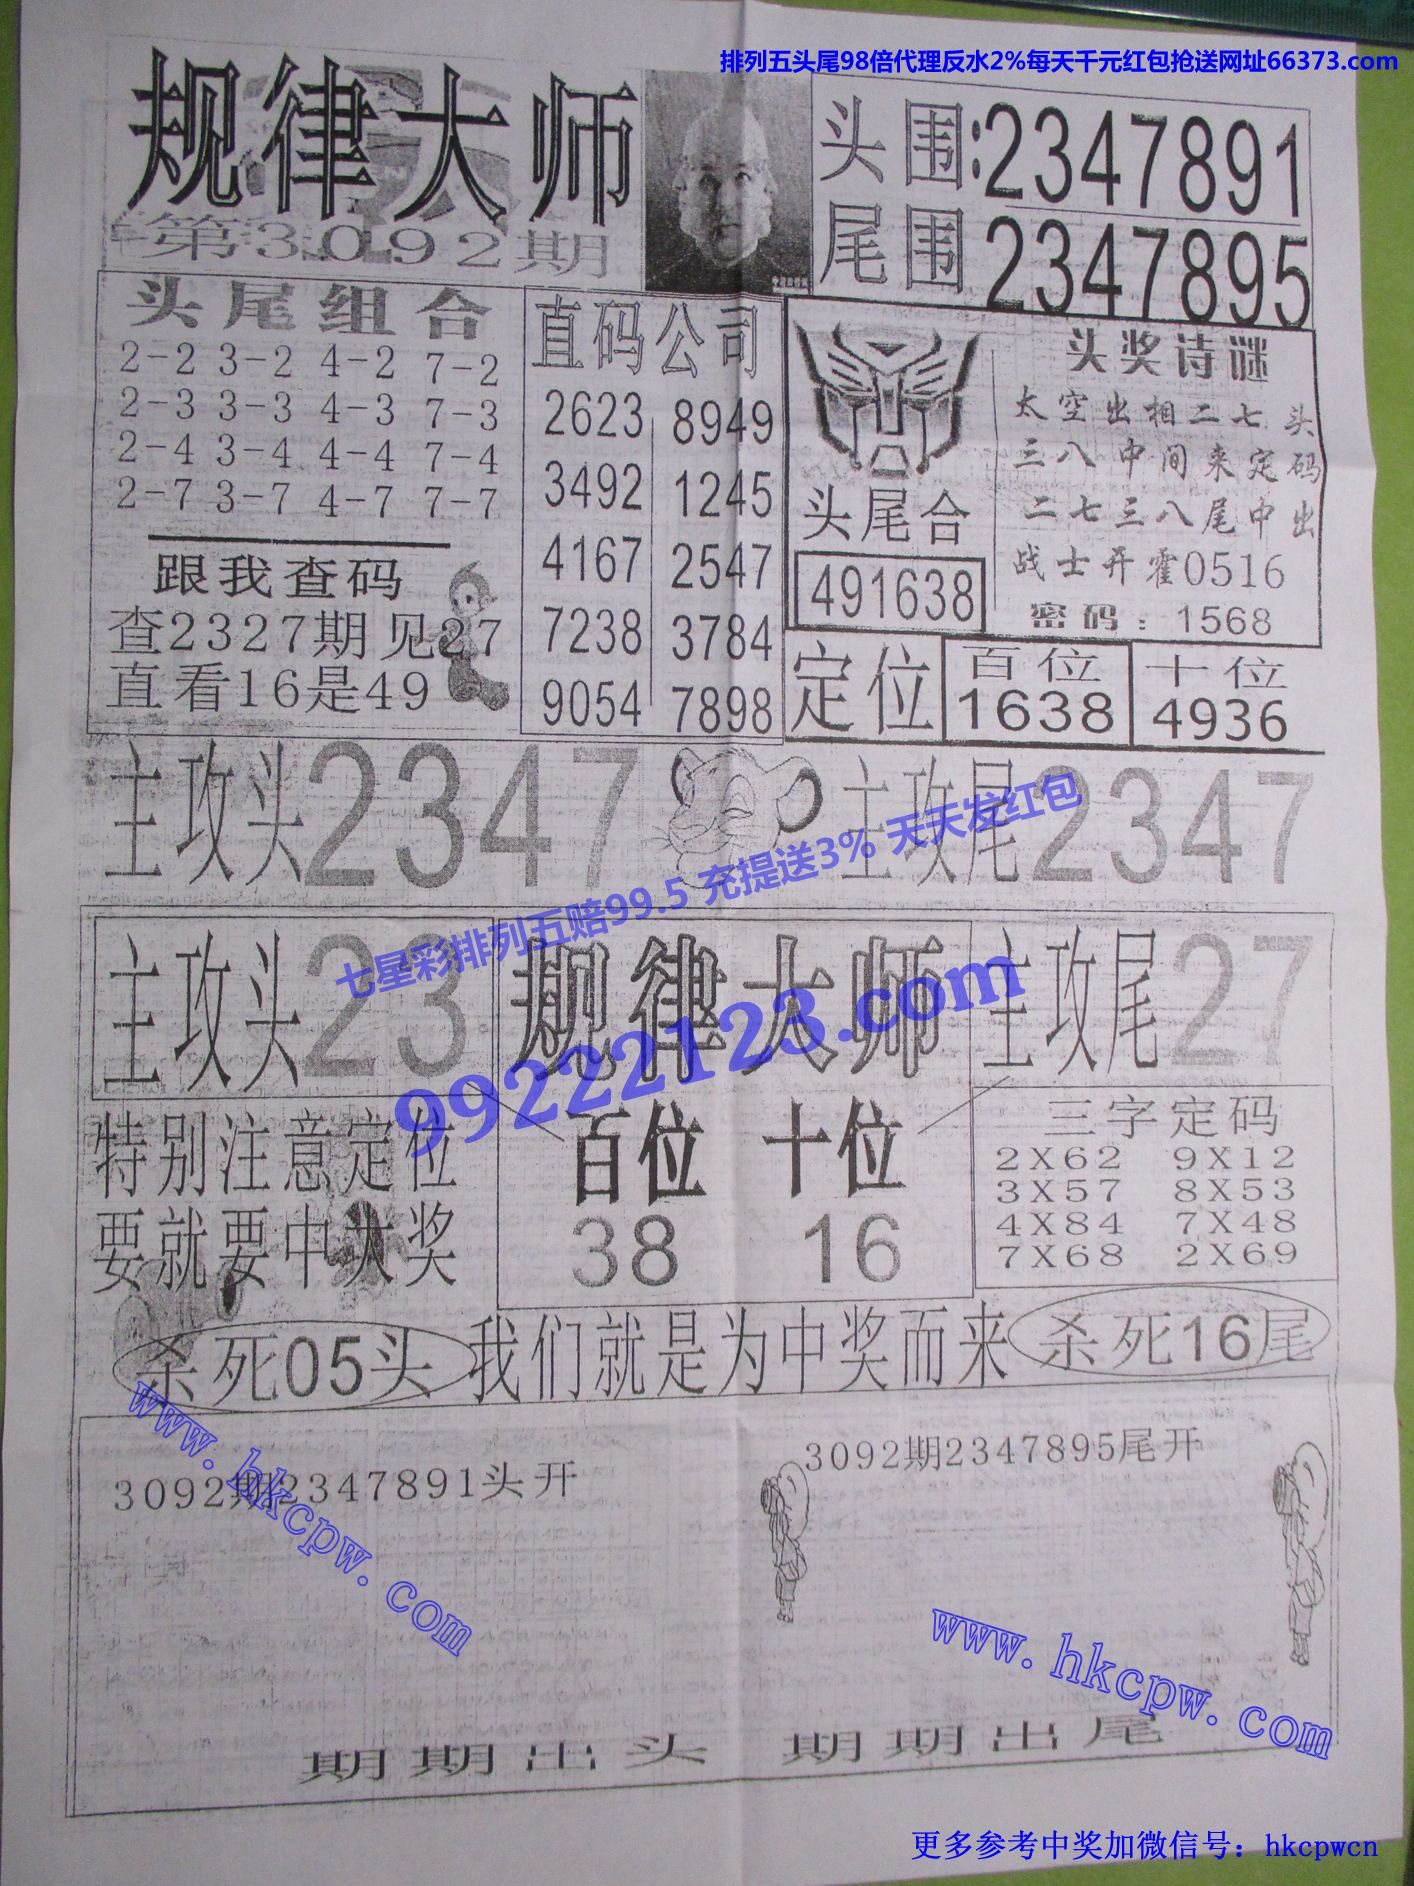 排列五头尾98倍代理反水2%每天千元红包抢送网址66373.com
规律大师
第3092期
头围:2347891
尾围2347895
头尾组合
2-2 3-2 4-2 7-2
2-3 3-3 4-3 7-3
2-4 3-4 4-4 7-4
2-7 3-7 4-7 7-7
跟我查码
查2327期见27
直看16是49
直码公司
2623 8949
3492 1245
4167 2547
7238 3784
9054 7898
头尾合
491638
头奖诗谜
太空出相二七头
三八中间来定码
二七三八尾中出
战士开霍0516
密码:1568
定位
百位
1638
十位
4936
主攻头2347
主攻尾2347
七星彩排列五赔99.5 充提送3% 天天发红包
99222123.com
主攻头23
规律大师
主攻尾27
特别注意定位
要就要中大奖
百位 十位
38 16
三字定码
2X62 9X12
3X57 8X53
4X84 7X48
7X68 2X69
杀死05头
我们就是为中奖而来
杀死16尾
3092期2347891头开
3092期2347895尾开
www.hkcpw.com
www.hkcpw.com
期期出头 期期出尾
更多参考中奖加微信号：hkcpwcn